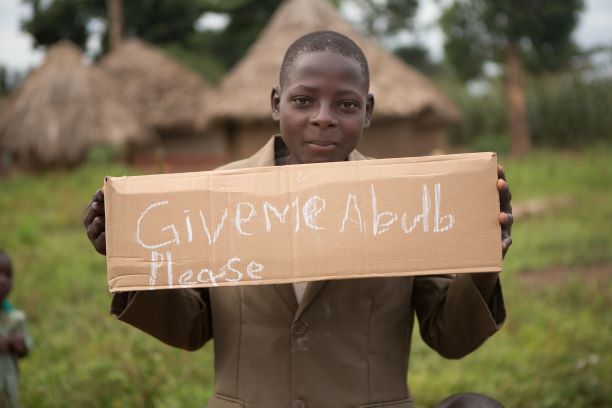 Give me A bulb
Please